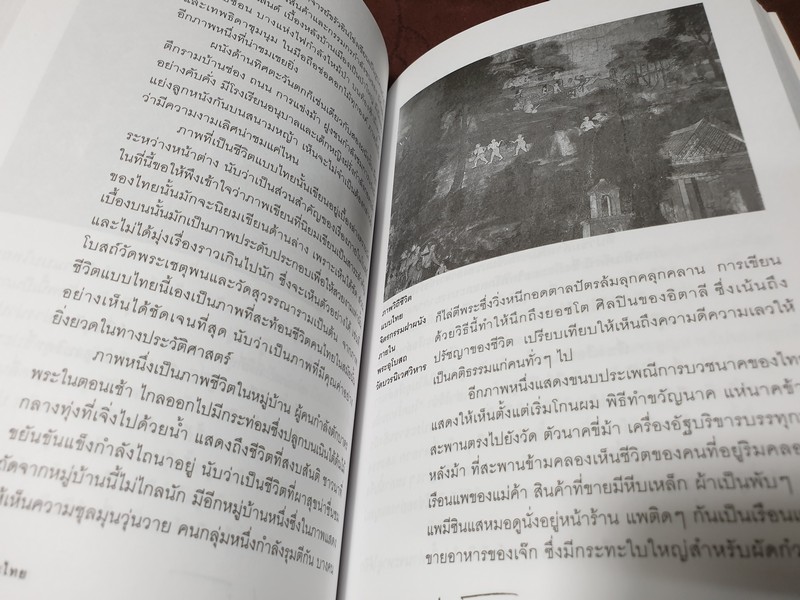 และเทพธิดาชุมนุม ในมือถือช่อดอกไม้
อีกภาพหนึ่งที่น่าชมเชยยิ่ง
ผนังด้านทิศตะวันตกก็เช่นเดียวกับ
ตึกรามบ้านช่อง ถนน การแข่งม้า ฝูงชน
อย่างคับคั่ง มีโรงเรียนอนุบาลและเด็กหญิง
แย่งลูกหนังกันบนสนามหญ้า เห็นจะไม่จำเป็น
ว่ามีความงามเลิศน่าชมแค่ไหน
ภาพที่เป็นชีวิตแบบไทยนั้นเขียนอยู่
ระหว่างหน้าต่าง นับว่าเป็นส่วนสำคัญของ
ในที่นี้ขอให้พึงเข้าใจว่าภาพเขียนที่นิยมเขียน
ของไทยนั้นมักจะนิยมเขียนด้านล่าง เพราะเห็นได้
เบื้องบนนั้นมักเป็นภาพประดับประกอบเพื่อให้สวยงาม
และไม่ได้มุ่งเรื่องราวเกินไปนัก ซึ่งจะเห็นตัวอย่างได้
โบสถ์วัดพระเชตุพนและวัดสุวรรณารามเป็นต้น
ชีวิตแบบไทยนี้เองเป็นภาพที่สะท้อนชีวิตคนไทยในสมัยนั้น
อย่างเห็นได้ชัดเจนที่สุด นับว่าเป็นภาพที่มีคุณค่า
ยิ่งยวดในทางประวัติศาสตร์
ภาพหนึ่งเป็นภาพชีวิตในหมู่บ้าน ผู้คนกำลังตักบาตร
พระในตอนเช้า ไกลออกไปมีกระท่อมซึ่งปลูกบนเนินใต้ต้นไม้
กลางทุ่งที่เจิ่งไปด้วยน้ำ แสดงถึงชีวิตที่สงบสันติ ชาวนาที่
ขยันขันแข็งกำลังไถนาอยู่ นับว่าเป็นชีวิตที่ผาสุขน่าชื่นชม
ถัดจากหมู่บ้านนี้ไม่ไกลนัก มีอีกหมู่บ้านหนึ่งซึ่งในภาพแสดง
ให้เห็นความชุลมุนวุ่นวาย คนกลุ่มหนึ่งกำลังรุมตีกัน บางคน
ภาพวิถีชีวิต
แบบไทย
จิตรกรรมฝาผนัง
ภายใน
พระอุโบสถ
วัดบวรนิเวศวิหาร
ก็ไล่ตีพระซึ่งวิ่งหนีกอดตาลปัตรล้มลุกคลุกคลาน การเขียน
ด้วยวิธีนี้ทำให้นึกถึงยอชโต ศิลปินของอิตาลี ซึ่งเน้นถึง
ปรัชญาของชีวิต เปรียบเทียบให้เห็นถึงความดีความเลวให้
เป็นคติธรรมแก่คนทั่วๆ ไป
อีกภาพหนึ่งแสดงขนบประเพณีการบวชนาคของไทย
แสดงให้เห็นตั้งแต่เริ่มโกนผม พิธีทำขวัญนาค แห่นาคข้าม
สะพานตรงไปยังวัด ตัวนาคขี่ม้า เครื่องอัฐบริขารบรรทุก
หลังม้า ที่สะพานข้ามคลองเห็นชีวิตของคนที่อยู่ริมคลอง
เรือนแพของแม่ค้า สินค้าที่ขายมีหีบเหล็ก ผ้าเป็นพับๆ
แพมีซินแสหมอดูนั่งอยู่หน้าร้าน แพติดๆ กันเป็นเรือน
ขายอาหารของเจ๊ก ซึ่งมีกระทะใบใหญ่สำหรับผัด